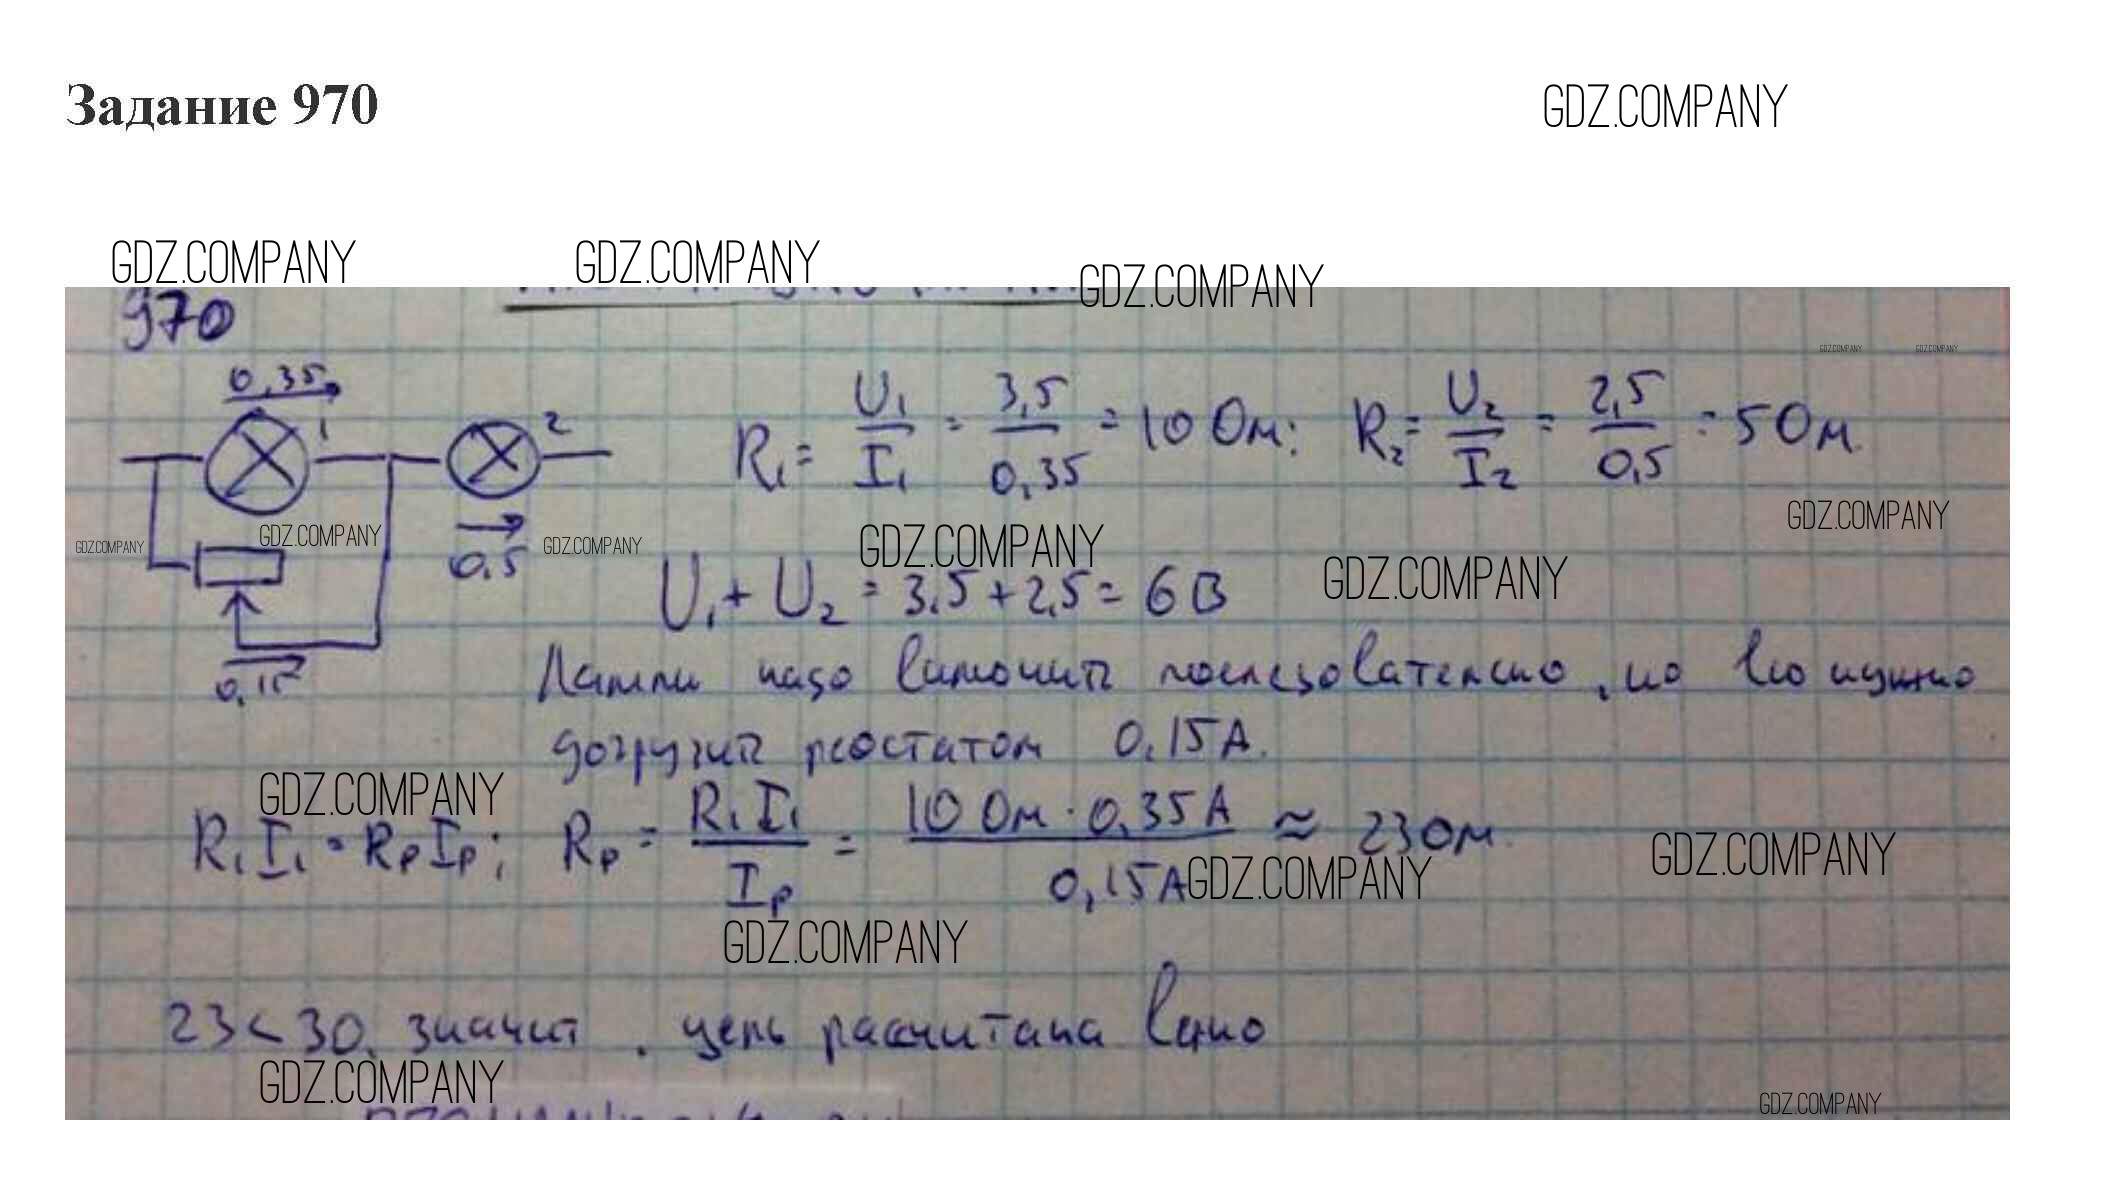 Задание 970
GDZ.COMPANY
GDZ.COMPANY GDZ.COMPANY GDZ.COMPANY
970
GDZ.COMPANY GDZ.COMPANY
0,35
1 2
R₁ = U₁/I₁ = 3,5/0,35 = 10 Ом; R₂ = U₂/I₂ = 2,5/0,5 = 5 Ом
GDZ.COMPANY
GDZ.COMPANY GDZ.COMPANY GDZ.COMPANY GDZ.COMPANY
0,5
U₁ + U₂ = 3,5 + 2,5 = 6 В
GDZ.COMPANY
Лампы надо включить последовательно, но нужно
0,15
догрузить реостатом 0,15 А.
GDZ.COMPANY
R₁I₁ = RрIр; Rр = R₁I₁/Iр = 10 Ом · 0,35 А/0,15 А ≈ 23 Ом
GDZ.COMPANY GDZ.COMPANY
GDZ.COMPANY
23 < 30, значит, цепь расчитана
GDZ.COMPANY
GDZ.COMPANY